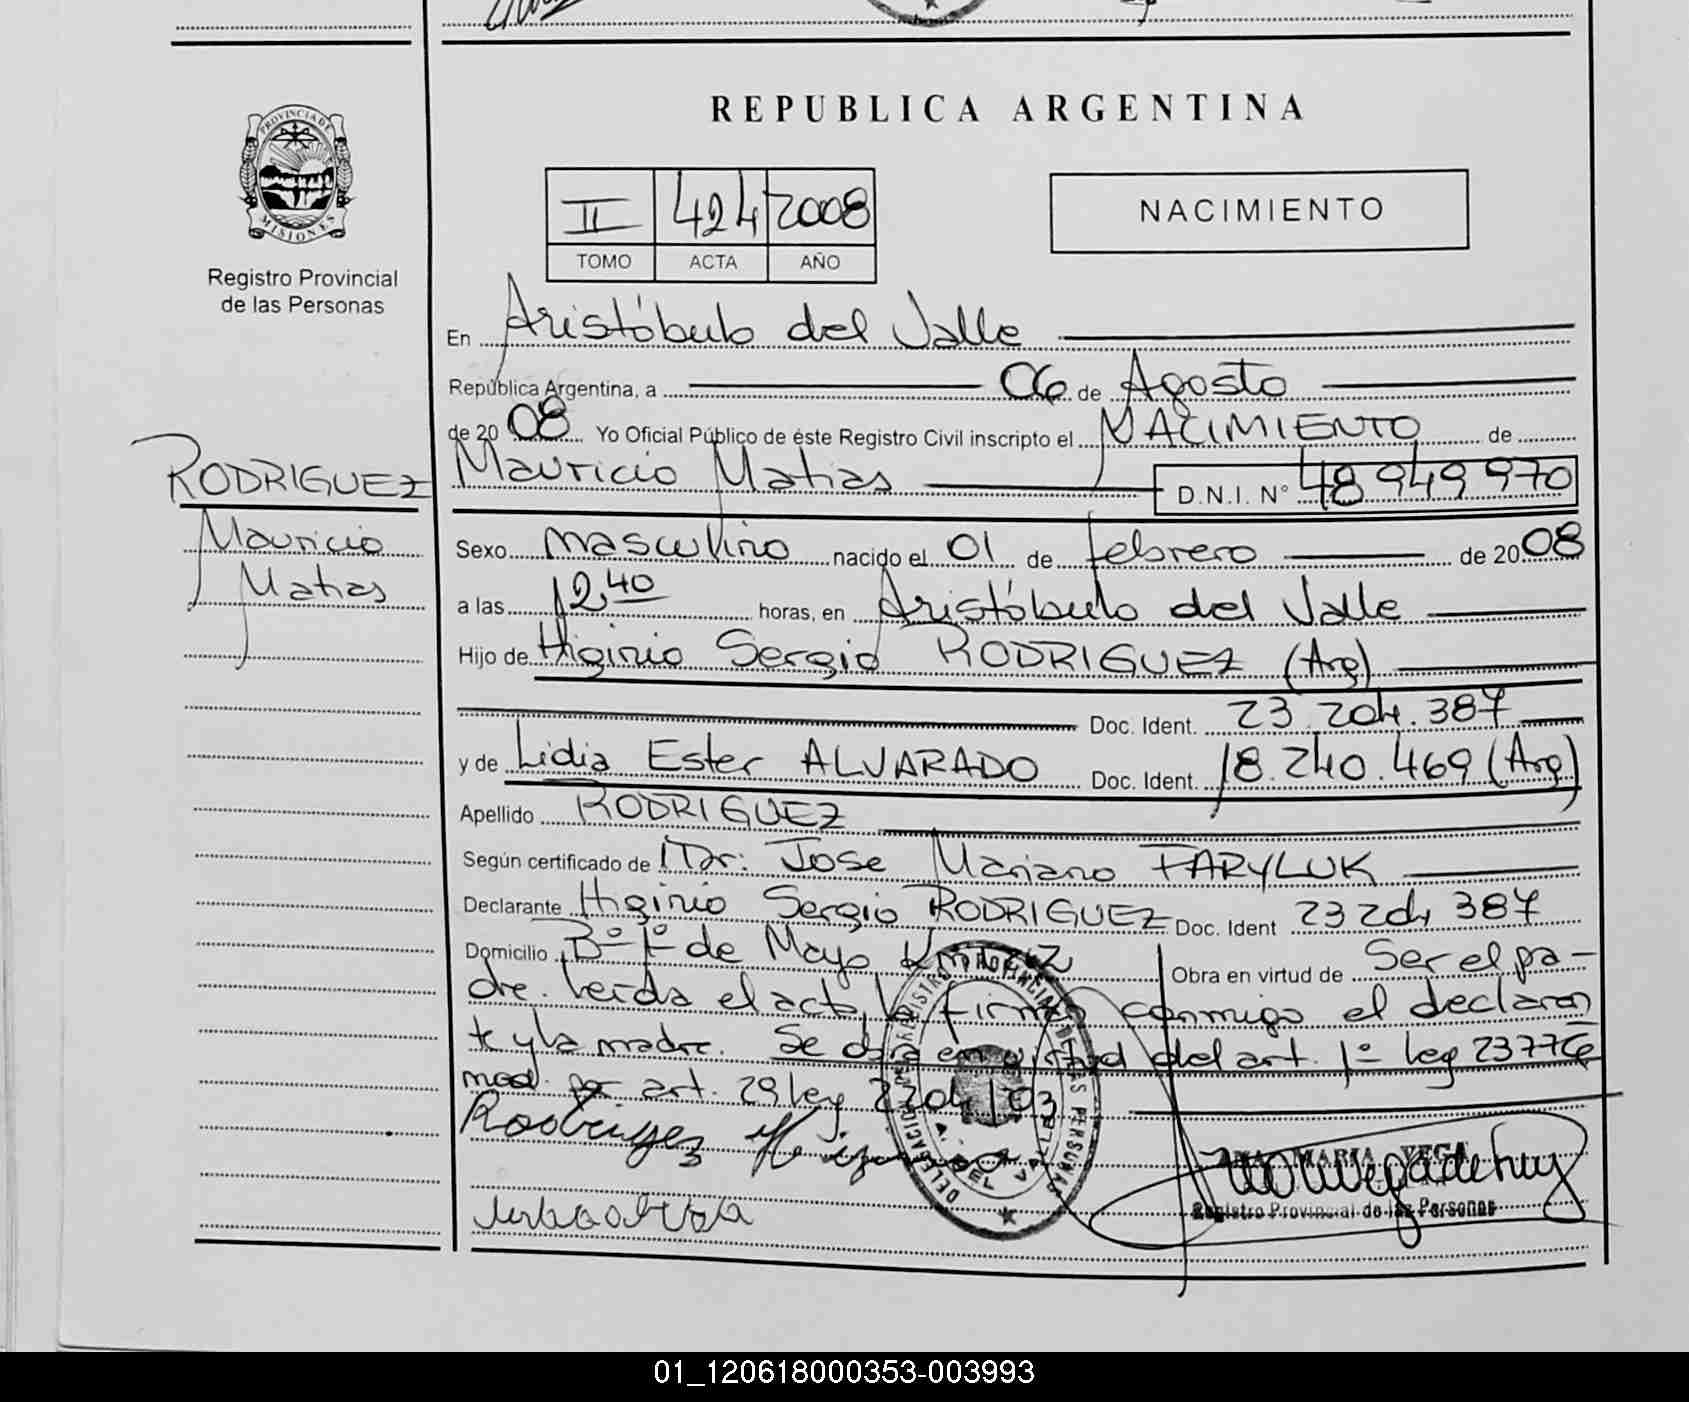 REPUBLICA ARGENTINA
PROVINCIA DE MISIONES
Registro Provincial
de las Personas
II 424 2008
TOMO ACTA AÑO
NACIMIENTO
En Aristóbulo del Valle
República Argentina, a 06 de Agosto
de 20 08 Yo Oficial Público de éste Registro Civil inscripto el NACIMIENTO de
RODRIGUEZ
Mauricio
Matias
Mauricio Matias D.N.I. Nº 48 949 970
Sexo masculino nacido el 01 de febrero de 20 08
a las 12,40 horas, en Aristóbulo del Valle
Hijo de Higinio Sergio RODRIGUEZ (Arg)
Doc. Ident. 23.204.387
y de Lidia Ester ALVARADO Doc. Ident. 18.240.469 (Arg)
Apellido RODRIGUEZ
Según certificado de Dr: Jose Mariano TARYLUK
Declarante Higinio Sergio RODRIGUEZ Doc. Ident 23 204 387
Domicilio Bº 1º de Mayo Obra en virtud de Ser el pa-
dre. Leída el acta, la firman conmigo el declaran
te y la madre. Se da en virtud del art. 1º Ley 23776
mod. por art. 29 ley
Rodriguez Higinio
ANA MARIA VEGA
Registro Provincial de las Personas
DELEGACION REGISTRO PROVINCIAL DE LAS PERSONAS
A. DEL VALLE
01_120618000353-003993